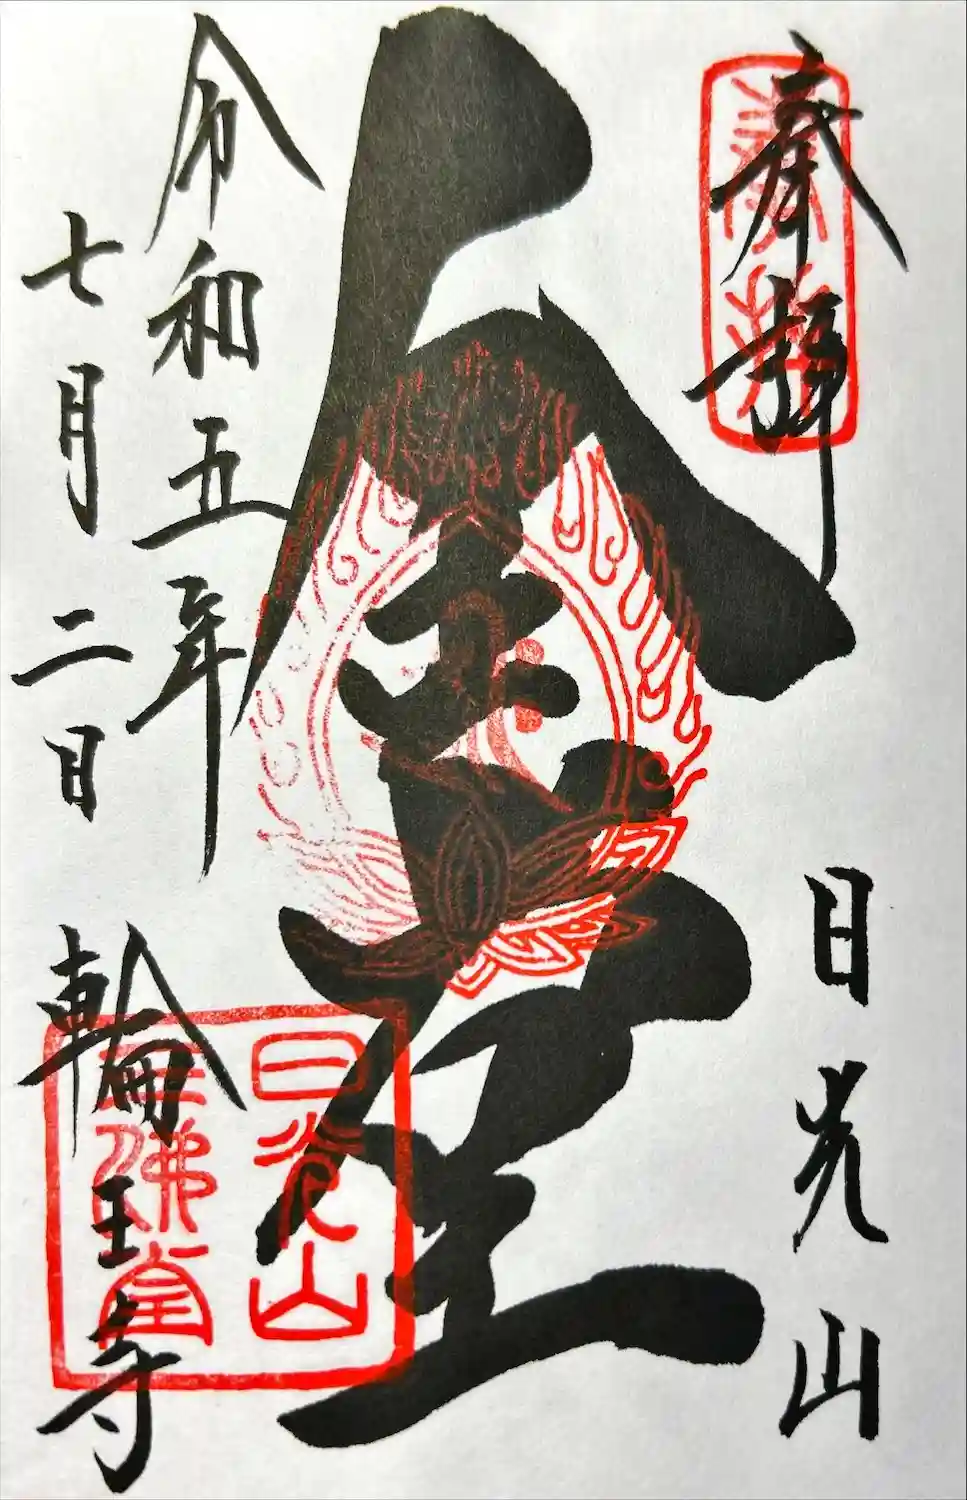 奉拝
日光山
金堂
令和五年
七月二日
輪王寺
日光山
三佛堂